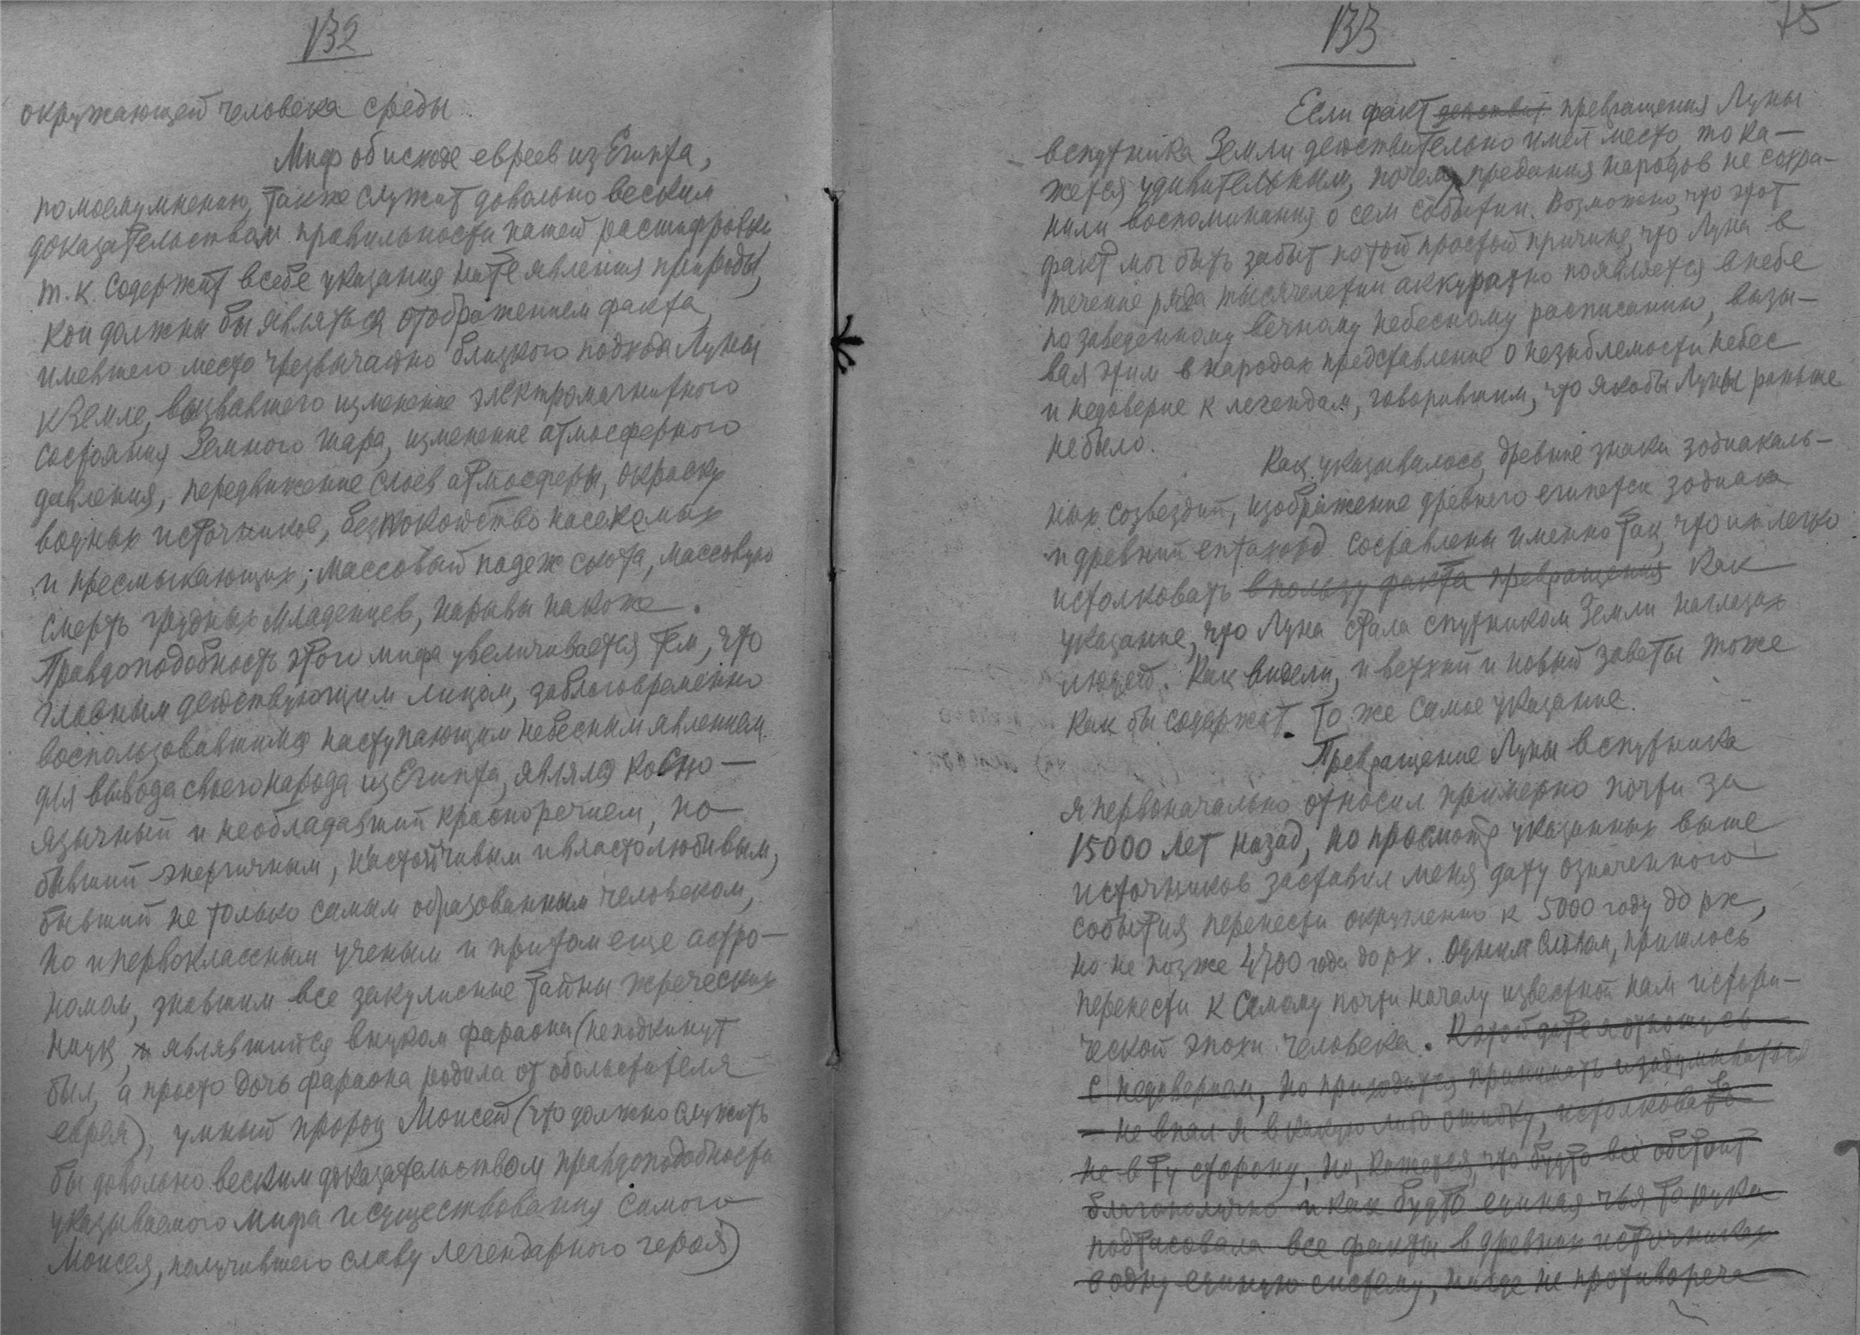 132
окружающей человека среды.
Миф об исходе евреев из Египта,
по моему мнению, также служит довольно веским
доказательством правильности нашей расшифровки
т.к. содержит в себе указания на те явления природы,
кои должны бы являться отображением факта
имевшего место чрезвычайно близкого подхода Луны
к Земле, вызвавшего изменение электромагнитного
состояния Земного шара, изменение атмосферного
давления, передвижение слоев атмосферы, окраску
водных источников, безпокойство насекомых
и пресмыкающих; массовый падеж скота, массовую
смерть грудных младенцев, нарывы на коже.
Правдоподобность этого мифа увеличивается тем, что
главным действующим лицом, заблаговременно
воспользовавшимся наступающим небесным явлением
для вывода своего народа из Египта, являлся косно-
язычный и необладавший красноречием, но
бывший энергичным, настойчивым и властолюбивым,
бывший не только самым образованным человеком,
но и первоклассным ученым и притом еще астро-
номом, знавшим все закулисные тайны жреческих
наук, и являвшийся внуком фараона (не подкинут
был, а просто дочь фараона родила от обольстителя
еврея), умный пророк Моисей (что должно служить
бы довольно веским доказательством правдоподобности
указываемого мифа и существования самого
Моисея, получившего славу легендарного героя)
133
75
Если факт действит превращения Луны
в спутника Земли действительно имел место, то ка-
жется удивительным, почему предания народов не сохра-
нили воспоминания о сем событии. Возможно, что этот
факт мог быть забыт по той простой причине, что Луна в
течение ряда тысячелетий аккуратно появляется в небе
по заведенному вечному небесному расписанию, вызы-
вая этим в народах представление о незыблемости небес
и недоверие к легендам, говорившим, что якобы Луны раньше
не было.
Как указывалось, древние знаки зодиакаль-
ных созвездий, изображение древнего египетск зодиака
и древний гептахорд составлены именно так, что их легко
истолковать в пользу факта превращения как
указание, что Луна стала спутником Земли на глазах
людей. Как видели, и ветхий и новый заветы тоже
как бы содержат то же самое указание.
Превращение Луны в спутника
я первоначально относил примерно почти за
15000 лет назад, но просмотр указанных выше
источников заставил меня дату означенного
события перенести округленно к 5000 году до рх,
но не позже 4700 года до рх. Одним словом, пришлось
перенести к самому почти началу известной нам истори-
ческой эпохи человека. К этой дате я отношусь
с недоверием, но приходится принимать и задумываться
- не впал я в какую либо ошибку, истолковав
не в ту сторону, но, кажется, что будто все обстоит
благополучно и как будто единая чья то рука
подтасовала все факты в древних источниках
в одну единую систему, нигде не противореча